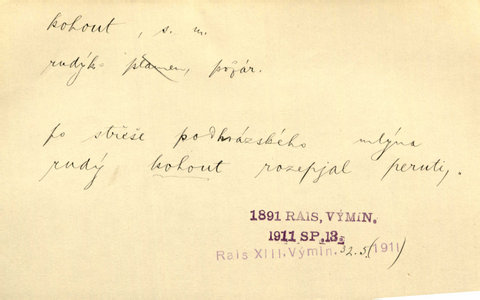 kohout, s. m.
rudý k. plamen, požár.
po střeše podhrázského mlýna
rudý kohout rozepjal peruti,.
1891 RAIS, VÝMIN.
1911 SP. 13.
Rais XIII, Výmin. 32. 5 (1911)